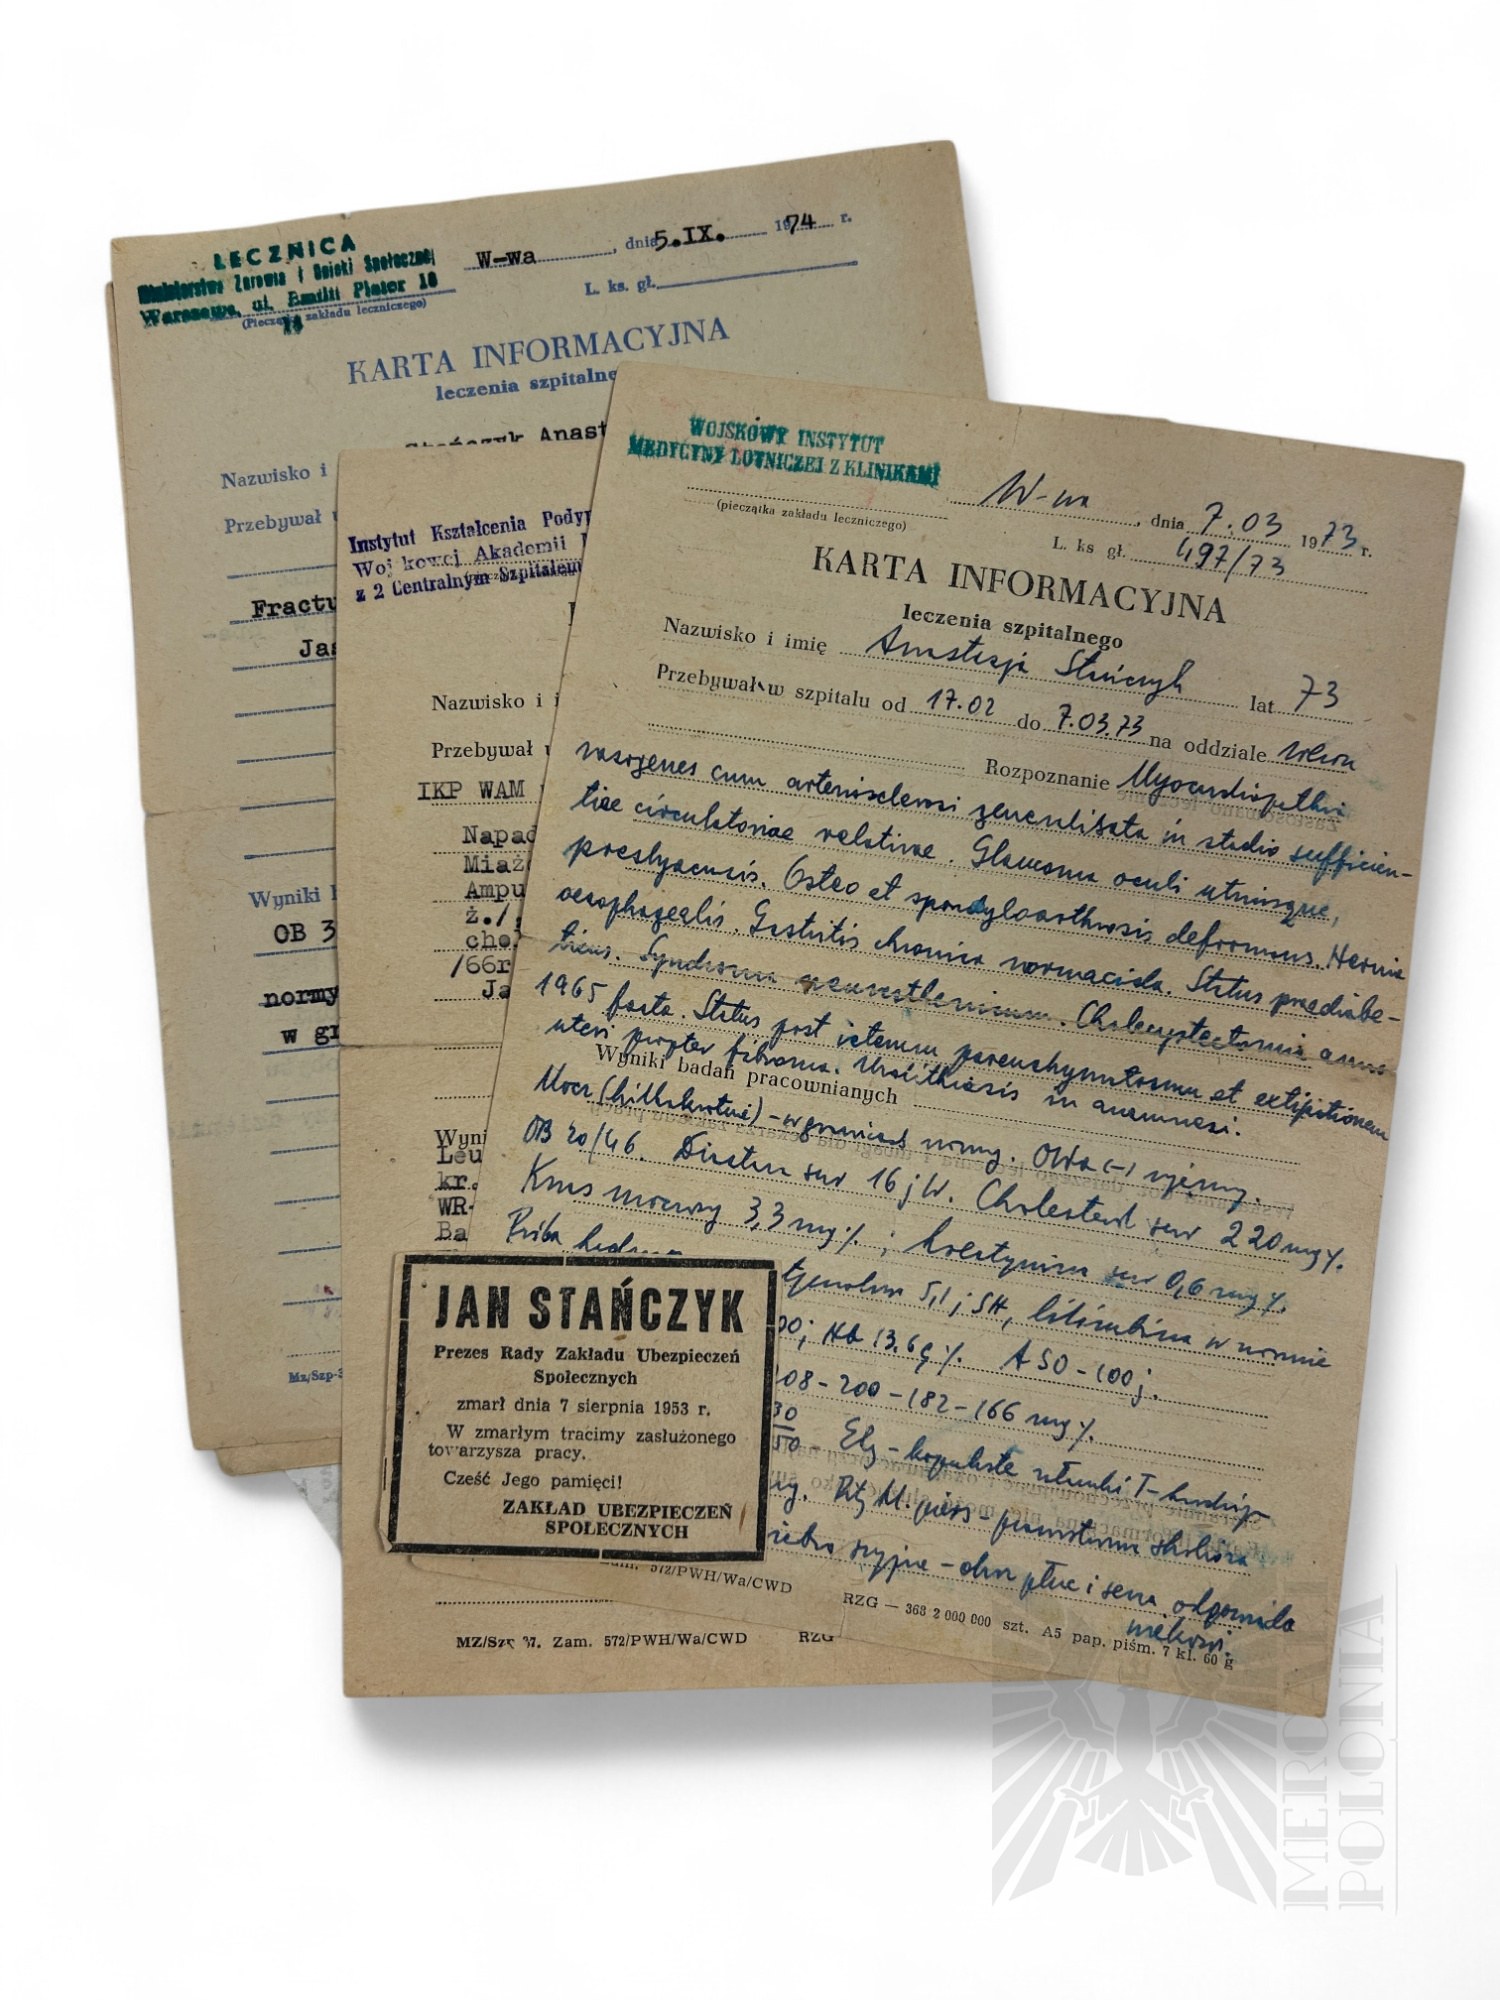 LECZNICA
Ministerstwa Zdrowia i Opieki Społecznej
Warszawa, ul. Emilii Plater 18
(Pieczątka zakładu leczniczego)
W-wa, dnia 5.IX. 1974 r.
L. ks. gł.
KARTA INFORMACYJNA
leczenia szpitalne
Stańczyk Anast
Nazwisko i
Przebywał
Fractu
Jas
Wyniki
OB 3
normy
w gr
Mz/Szp-3
Instytut Kształcenia Podyp
Wojskowej Akademii
z 2 Centralnym Szpitalem
Nazwisko i i
Przebywał
IKP WAM
Napad
Miaż
Ampu
ż./
cho
/66r
Ja
Wyni
Leu
kr.
WR-
Ba
MZ/Szp 37. Zam. 572/PWH/Wa/CWD RZG
WOJSKOWY INSTYTUT
MEDYCYNY LOTNICZEJ Z KLINIKAMI
(pieczątka zakładu leczniczego)
W-wa, dnia 7.03 1973 r.
L. ks gł. 497/73
KARTA INFORMACYJNA
leczenia szpitalnego
Nazwisko i imię Anastazja Stańczyk lat 73
Przebywał w szpitalu od 17.02 do 7.03.73 na oddziale
Rozpoznanie Myocardiopathia
vasogenes cum arteriosclerosi generalisata in stadio sufficien-
tiae circulatoriae relativae. Glaucoma oculi utriusque,
presbyacusis. Osteo et spondyloarthrosis deformans. Hernia
oesophagealis. Gastritis chronica normacida. Status praediabe-
ticus. Syndroma neurasthenicum. Cholecystectomia anno
1965 facta. Status post icterum parenchymatosum et extirpationem
uteri propter fibroma. Urolithiasis in anamnesi.
Wyniki badań pracownianych
Mocz (kilkakrotnie) - w granicach normy. OWa (-) ujemny.
OB 20/46. Diastaza sur 16 j W. Cholesterol sur 220 mg%.
Kwas moczowy 3,3 mg%; kreatynina sur 0,6 mg%.
Próba
tymolowa 5,1 j SH, bilirubina w normie
00; Hb 13.6 g%. ASO - 100 j.
208 - 200 - 182 - 166 mg%.
30
50 - Ekg - kopulaste załamki T
Rtg kl. piers - prawostronna skolioza
szyjne - obraz płuc i serca odpowiada
wiekowi.
572/PWH/Wa/CWD RZG — 363 2 000 000 szt. A5 pap. piśm. 7 kl. 60 g
JAN STAŃCZYK
Prezes Rady Zakładu Ubezpieczeń
Społecznych
zmarł dnia 7 sierpnia 1953 r.
W zmarłym tracimy zasłużonego
towarzysza pracy.
Cześć Jego pamięci!
ZAKŁAD UBEZPIECZEŃ
SPOŁECZNYCH
MERCATO
POLONIA